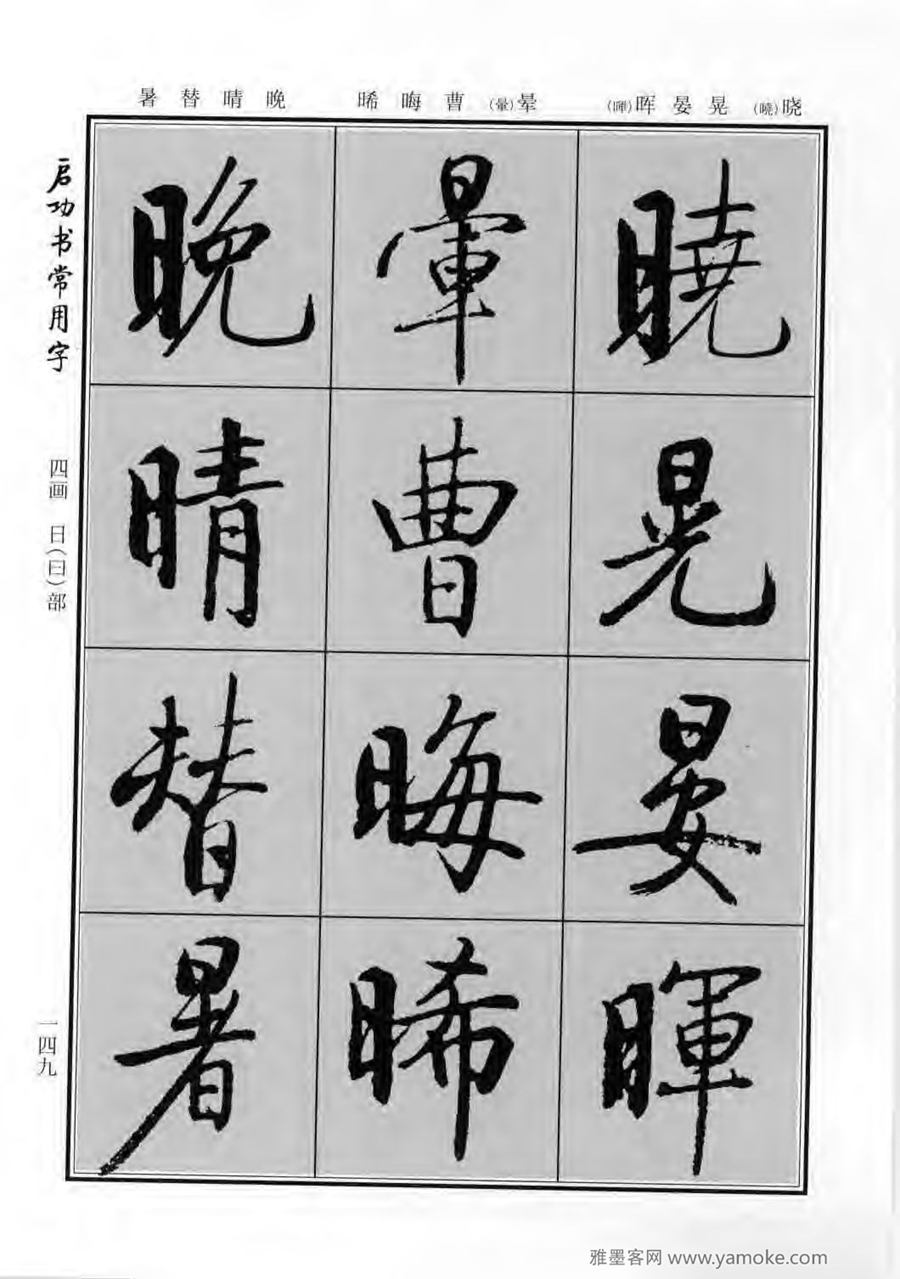 晓(曉) 晃 晏 晖(暉)
晕(暈) 曹 晦 晞
晚 晴 替 暑
曉 晃 晏 暉
暈 曹 晦 晞
晚 晴 替 暑
启功书常用字
四画 日(曰)部
一四九
雅墨客网 www.yamoke.com